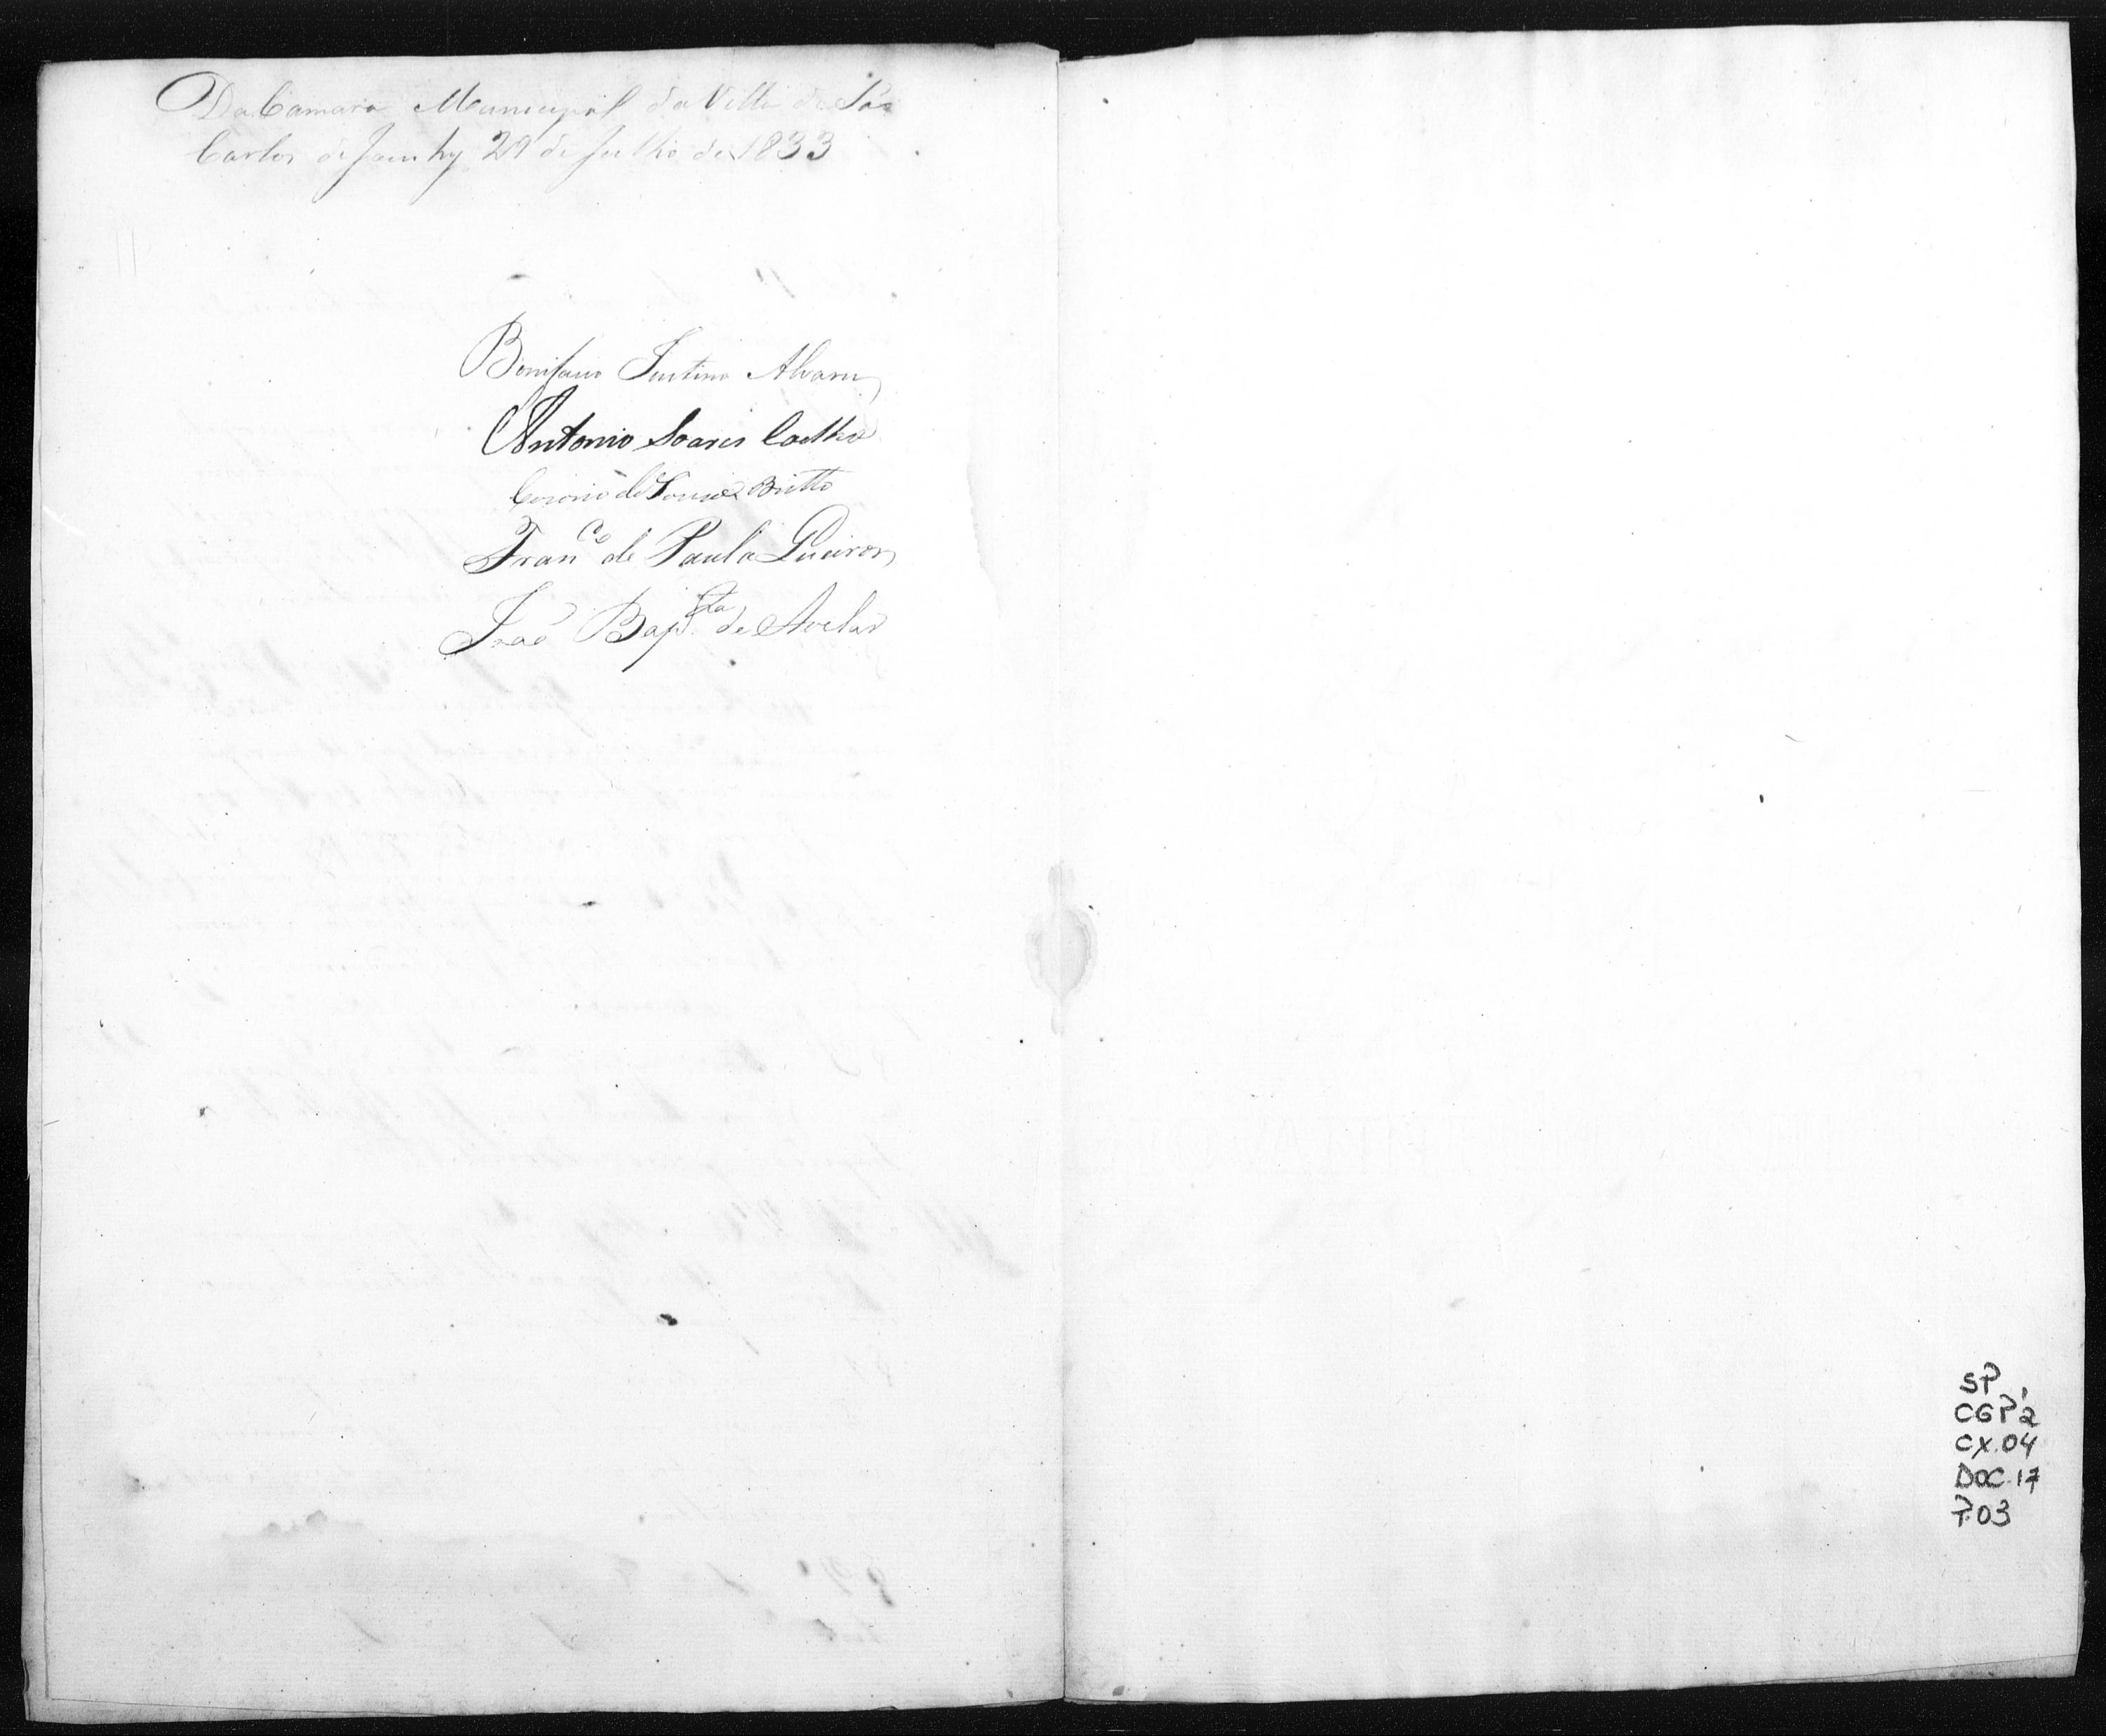 Da Camara Municipal da Villa de São
Carlos de Jacuhy 29 de Julho de 1833
Bonifacio Justino Alvares
Antonio Soares Coelho
de Souza Britto
Fran.co de Paula Queiros
João Bap.ta de Avelar
SP
CGP2
CX.04
DOC.17
P.03